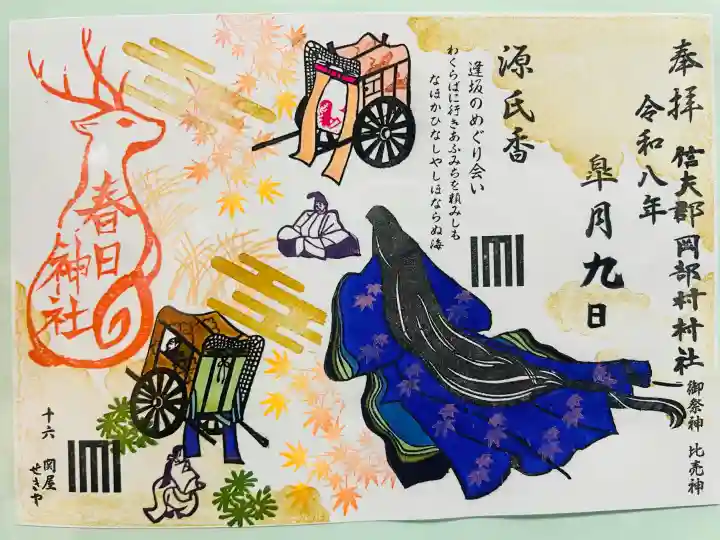 奉拝
信夫郡岡部村村社
御祭神 比売神
令和八年
皐月九日
源氏香
逢坂のめぐり会い
わくらばに行きあふみちを頼みしも
なほかひなしやしほならぬ海
春日
神社
十六 関屋
せきや